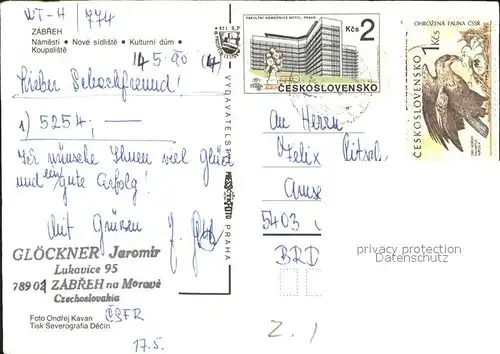 WT-H / 774
ZÁBŘEH
Náměstí • Nové sídliště • Kulturní dům •
Koupaliště
14.5.90 (4)
Lieber Schachfreund!
1) 5254, —
Ich wünsche Ihnen viel Glück
und gute Erfolg!
Mit Grüßen J.
GLÖCKNER Jaromir
Lukavice 95
789 02 ZÁBŘEH na Moravě
Czechoslovakia
ČSFR
Foto Ondřej Kavan
Tisk Severografia Děčín
17.5.
VYDAVATELSTVÍ
PRAHA
FAKULTNÍ NEMOCNICE MOTOL, PRAHA
Kčs 2
ČESKOSLOVENSKO
OHROŽENÁ FAUNA ČSSR
1 Kčs
ČESKOSLOVENSKO
An Herrn
Felix
5403
BRD
privacy protection
Datenschutz
Z. 1